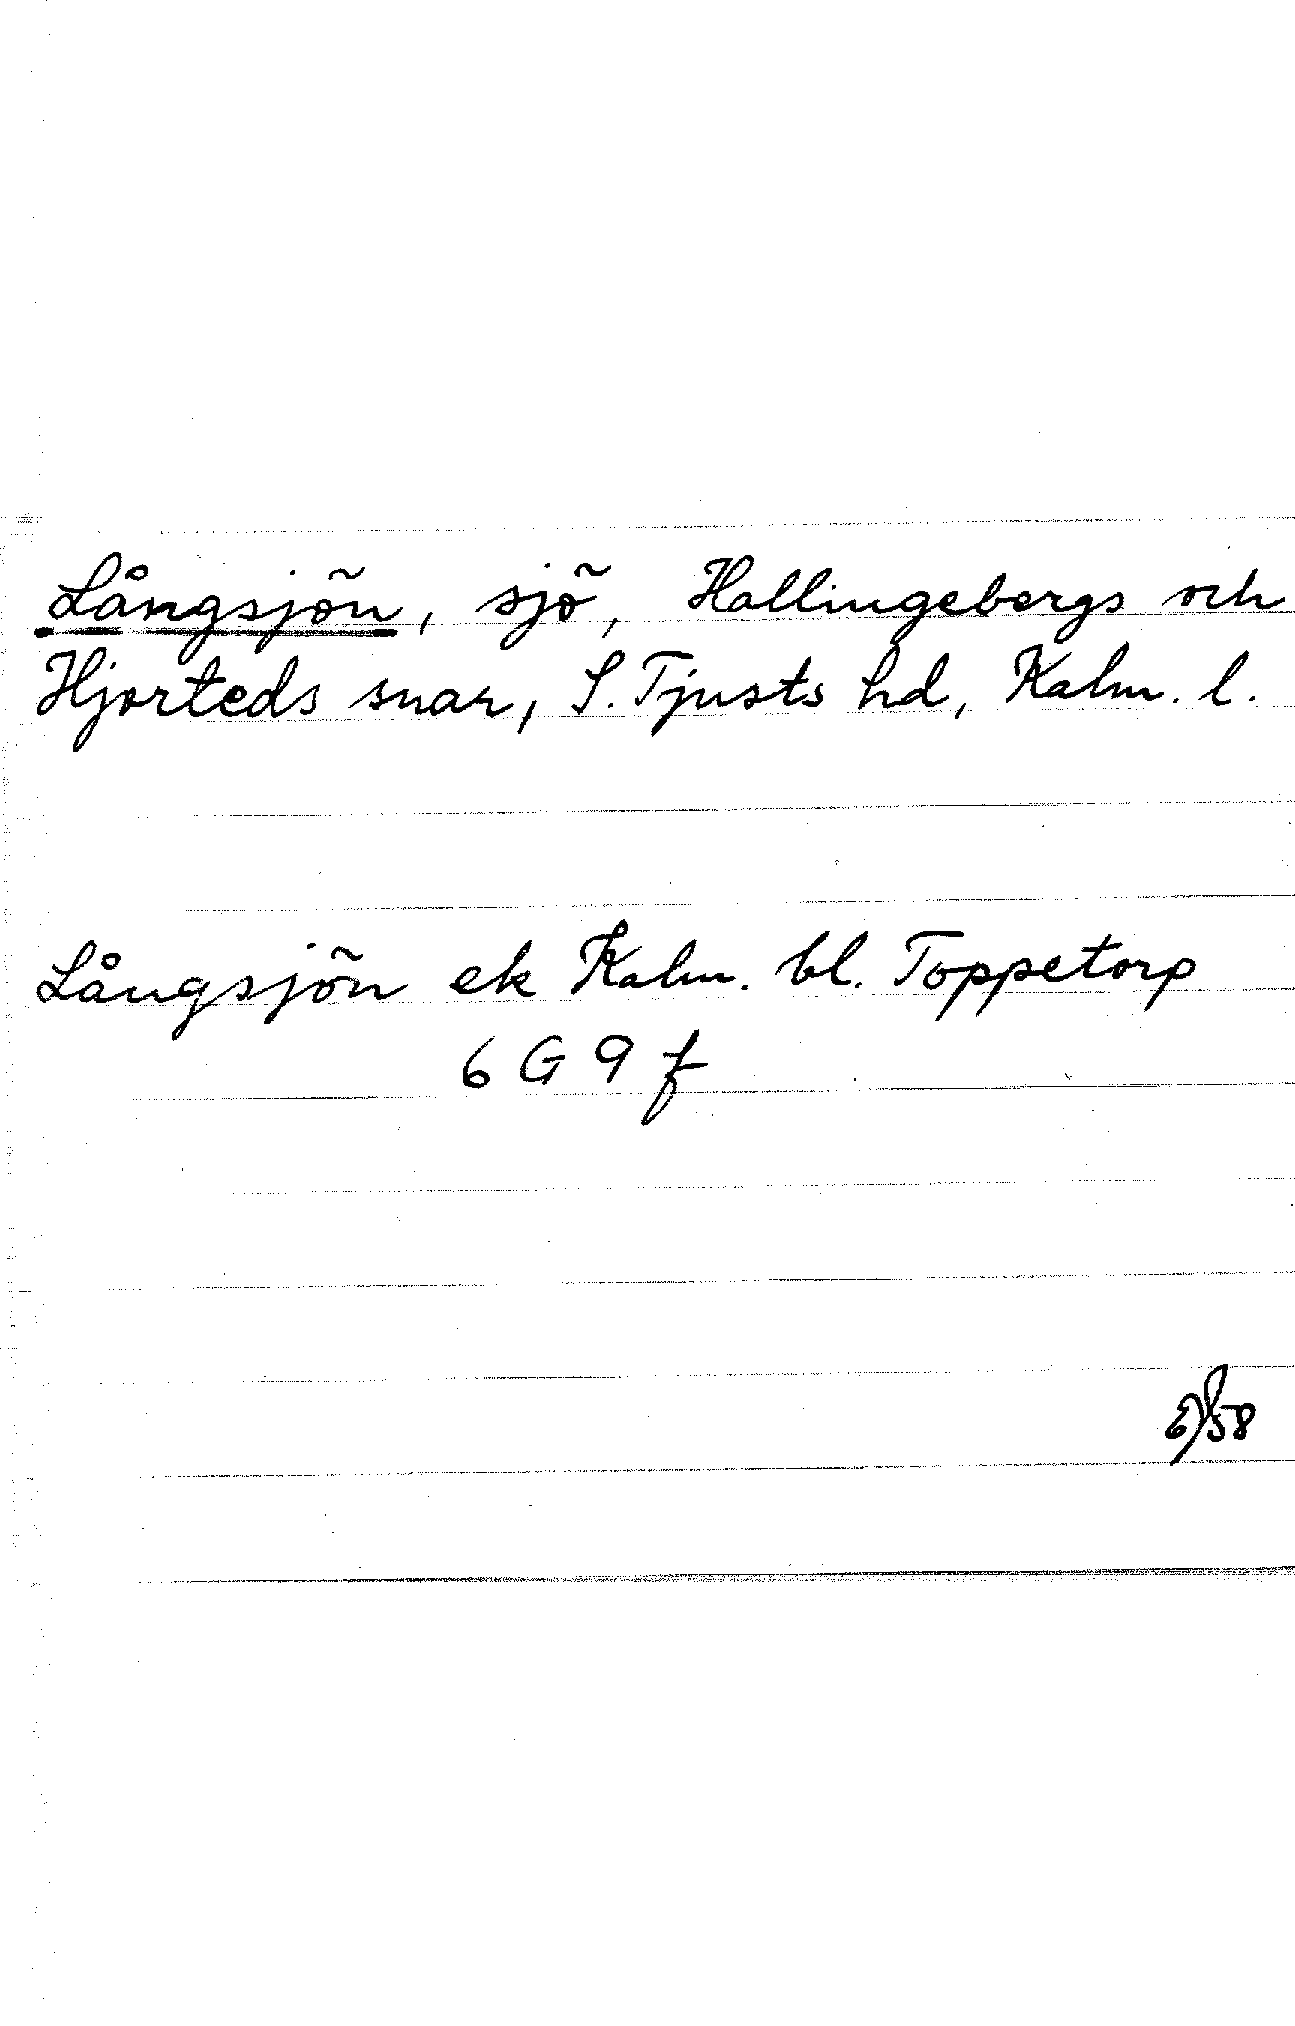 Långsjön, sjö, Hallingebergs och
Hjorteds snar, S. Tjusts hd, Kalm. l.
Långsjön ek Kalm. bl. Toppetorp
6 G 9 f